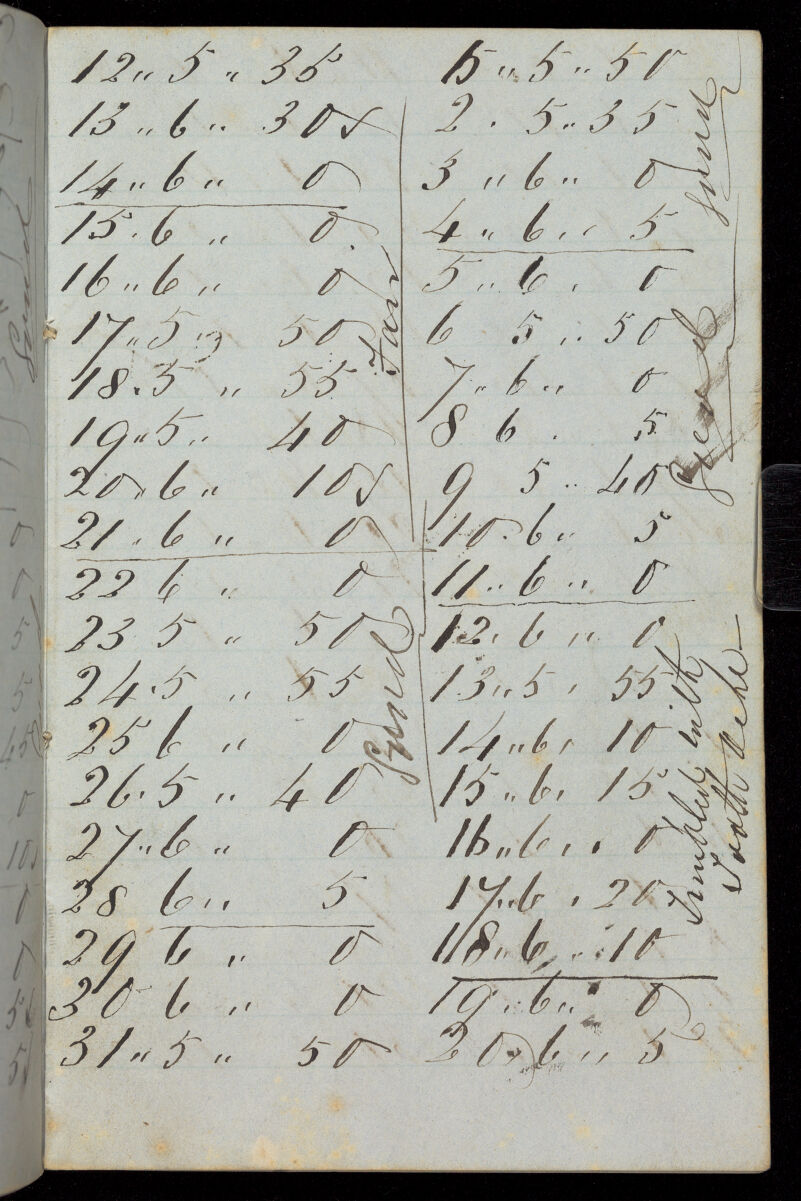 12 " 5 " 35
13 " 6 " 30
14 " 6 " 0
15 . 6 " 0
16 " 6 " 0
17 " 5 " 50
18 . 5 " 55
19 " 5 " 40
20 " 6 " 10
21 " 6 " 0
22 6 " 0
23 5 " 50
24 . 5 " 55
25 6 " 0
26 . 5 " 40
27 " 6 " 0
28 6 " 5
29 6 " 0
30 6 " 0
31 " 5 " 50
15 " 5 " 50
2 . 5 " 35
3 " 6 " 0
4 " 6 " 5
5 " 6 . 0
6 5 " 50
7 " 6 " 0
8 6 . 5
9 5 " 40
10 . 6 " 5
11 " 6 " 0
12 . 6 " 0
13 " 5 . 55
14 " 6 . 10
15 " 6 . 15
16 " 6 . . 0
17 " 6 . 20
18 " 6 " 10
19 " 6 " 0
20 " 6 " 5
good
with
Tooth Ache